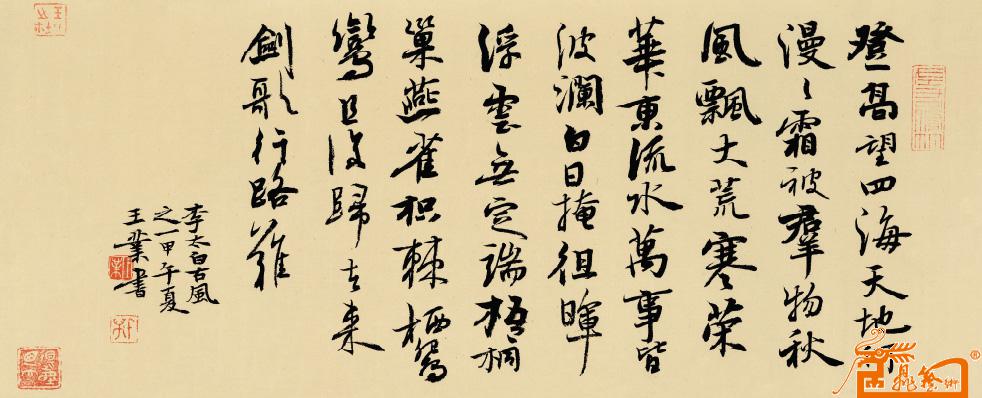 登高望四海天地何
漫々霜被羣物秋
風飄大荒寒榮
華東流水萬事皆
波瀾白日掩徂暉
浮雲無定端梧桐
巢燕雀枳棘栖鴛
鸞且復歸去来
劍歌行路難
李太白古風
之一甲午夏
王業書